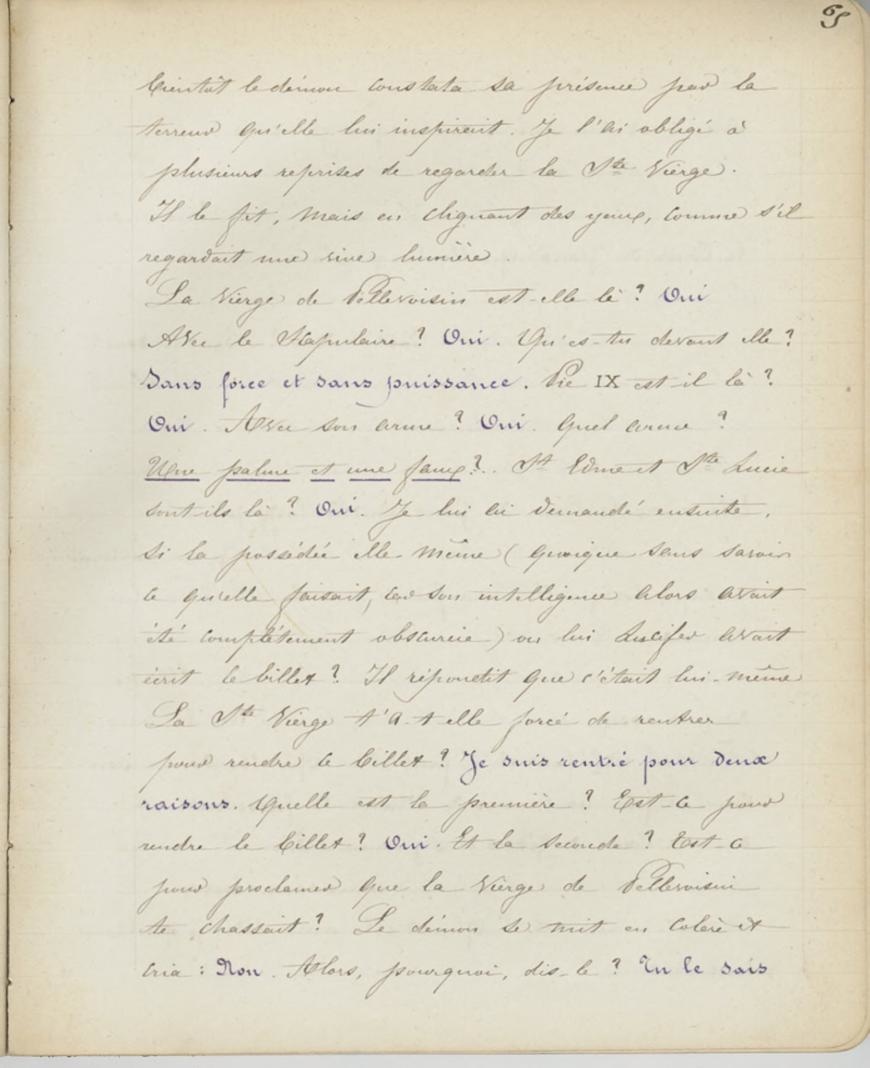 65
bientôt le démon constata sa présence par la
terreur qu'elle lui inspirait. Je l'ai obligé à
plusieurs reprises de regarder la Ste Vierge.
Il le fit, mais en clignant des yeux, comme s'il
regardait une vive lumière.
La Vierge de Pellevoisin est-elle là ? Oui
Avec le Scapulaire ? Oui. Qu'es-tu devant elle ?
Sans force et sans puissance. Pie IX est-il là ?
Oui. Avec son arme ? Oui. Quel arme ?
Une palme et une faux ?. St Edme et Ste Lucie
sont-ils là ? Oui. Je lui ai demandé ensuite,
si la possédée elle-même (quoique sans savoir
ce qu'elle faisait, car son intelligence alors avait
été complètement obscurcie) ou lui Lucifer avait
écrit le billet ? Il répondit que c'était lui-même
La Ste Vierge t'a-t-elle forcé de rentrer
pour rendre ce billet ? Je suis rentré pour deux
raisons. Quelle est la première ? Est-ce pour
rendre le billet ? Oui. Et la seconde ? Est-ce
pour proclamer que la Vierge de Pellevoisin
te chassait ? Le démon se mit en colère et
cria : Non. Alors, pourquoi, dis-le ? Tu le sais